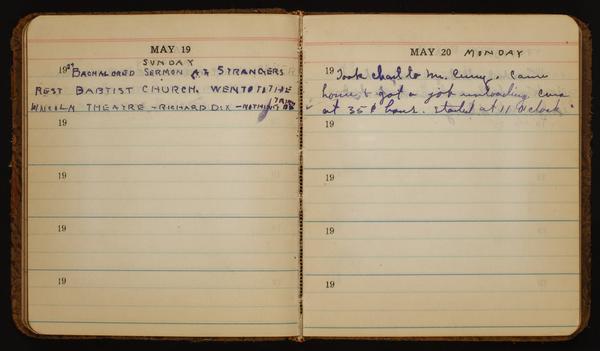 MAY 19
SUNDAY
19 BACHALORED SERMON AT STRANGERS
REST BABTIST CHURCH. WENT TO THE
LINCOLN THEATRE - RICHARD DIX - NOTHING
19
19
19
19
MAY 20 MONDAY
19 Took chart to Mr. Curry. Came
home & got a job unloading cars
at 35¢ hour. Started at 11 O'clock.
19
19
19
19